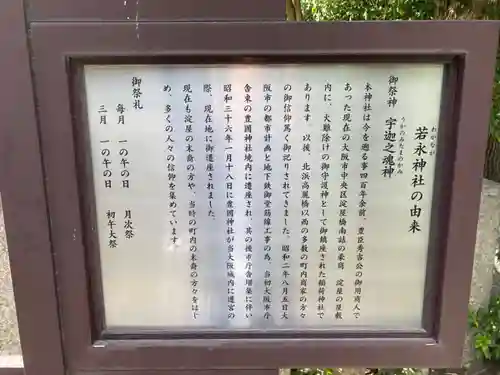 若永神社の由来
わかながじんじゃ
御祭神　宇迦之魂神
うかのみたまのかみ
本神社は今を遡る事四百年余前、豊臣秀吉公の御用商人で
あった現在の大阪市中央区淀屋橋南詰の豪商　淀屋の屋敷
内に、火難除けの御守護神として御鎮座された稲荷神社で
あります。以後、北浜高麗橋以西の多数の町内商家の方々
の御信仰篤く御祀りされてきました。昭和二年八月五日大
阪市の都市計画と地下鉄御堂筋線工事の為、当初大阪市庁
舎東の豊國神社境内に遷座され、其の後市庁舎増築に伴い
昭和三十六年一月十八日に豊國神社が当大阪城内に遷宮の
際、現在地に御遷座されました。
現在も淀屋の末裔の方や、当時の町内の末裔の方々をはじ
め、多くの人々の信仰を集めています。
御祭礼
毎月　一の午の日　　月次祭
三月　一の午の日　　初午大祭